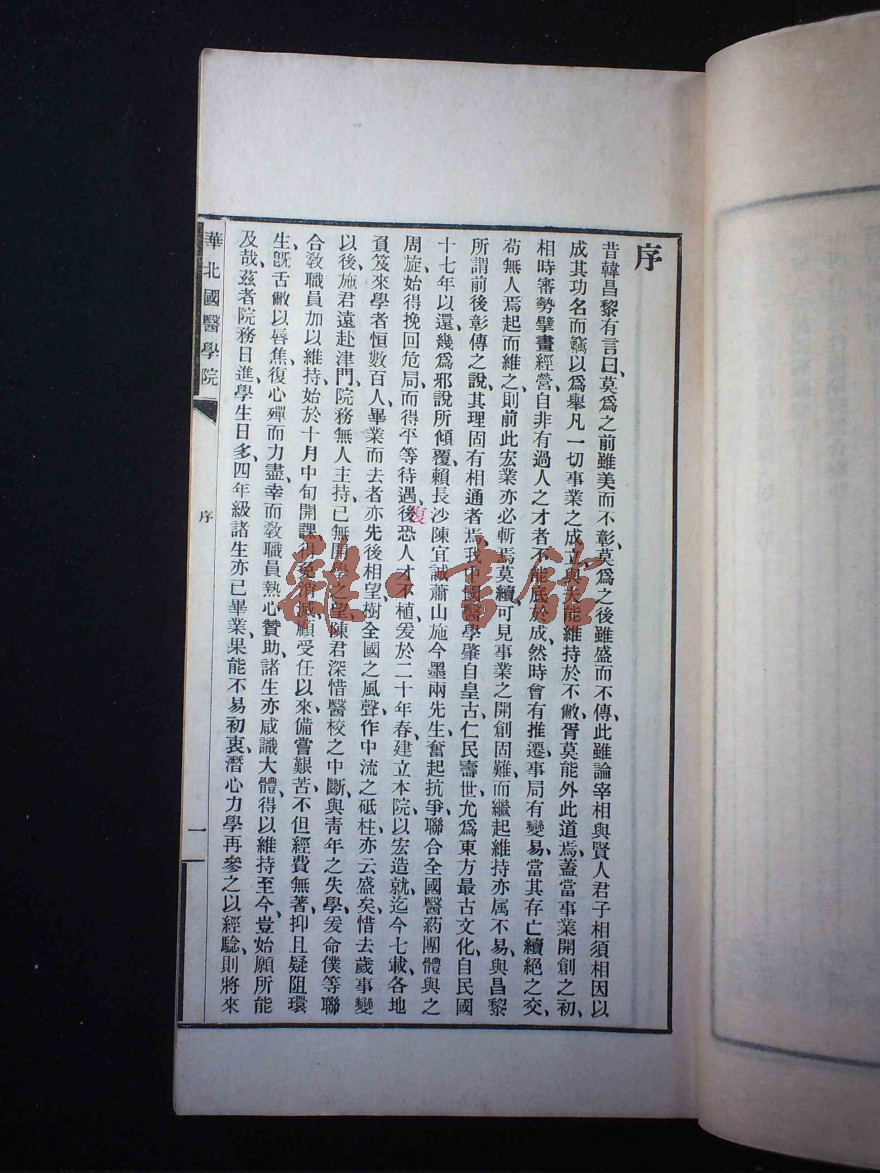 序
昔韓昌黎有言曰、莫爲之前雖美而不彰、莫爲之後雖盛而不傳、此雖論宰相與賢人君子相須相因以
成其功名而竊以爲舉凡一切事業之成立與夫能維持於不敝、胥莫能外此道焉、蓋當事業開創之初、
相時審勢擘畫經營、自非有過人之才者不能底於成然時會有推遷事局有變易、當其存亡續絕之交、
苟無人焉起而維之、則前此宏業亦必斬焉莫續、可見事業之開創固難而繼起維持亦属不易、與昌黎
所謂前後彰傳之說其理固有相通者焉、我中國醫學肇自皇古仁民壽世尤爲東方最古文化、自民國
十七年以還、幾爲邪說所傾覆、賴長沙陳宜誠蕭山施今墨兩先生奮起抗爭、聯合全國醫药團體與之
周旋、始得挽回危局、而得平等待遇、後恐人才不植、爰於二十年春、建立本院、以宏造就、迄今七載、各地
負笈來學者恒數百人、畢業而去者亦先後相望、樹全國之風聲、作中流之砥柱、亦云盛矣、惜去歲事變
以後、施君遠赴津門、院務無人主持、已無開學之望、陳君深惜醫校之中斷、與靑年之失學、爰命僕等聯
合敎職員加以維持、始於十月中旬開課、得免消滅、顧受任以來、備嘗艱苦、不但經費無著、抑且疑阻環
生、旣舌敝以唇焦、復心殫而力盡、幸而敎職員熱心贊助、諸生亦咸識大體、得以維持至今、豈始願所能
及哉、茲者院務日進、學生日多、四年級諸生亦已畢業、果能不易初衷、潛心力學、再參之以經騐、則將來
華北國醫學院
序
一
復
雜·書館